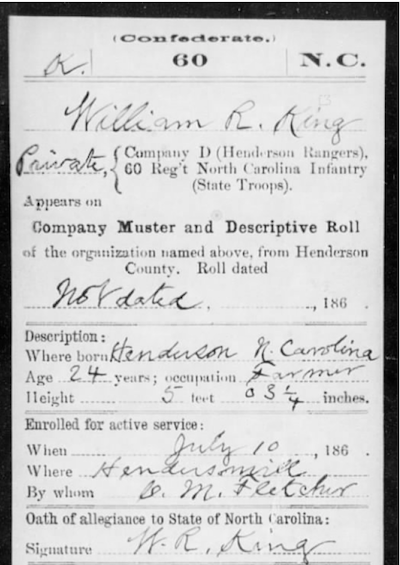 (Confederate.)
K. | 60 | N.C.
William R. King
Private, { Company D (Henderson Rangers),
60 Reg't North Carolina Infantry
(State Troops).
Appears on
Company Muster and Descriptive Roll
of the organization named above, from Henderson
County. Roll dated
Not dated, 186 .
Description:
Where born Henderson N. Carolina
Age 24 years; occupation Farmer
Height 5 feet 3 1/4 inches.
Enrolled for active service:
When July 10, 186 .
Where
By whom M. Fletcher
Oath of allegiance to State of North Carolina:
Signature W. R. King